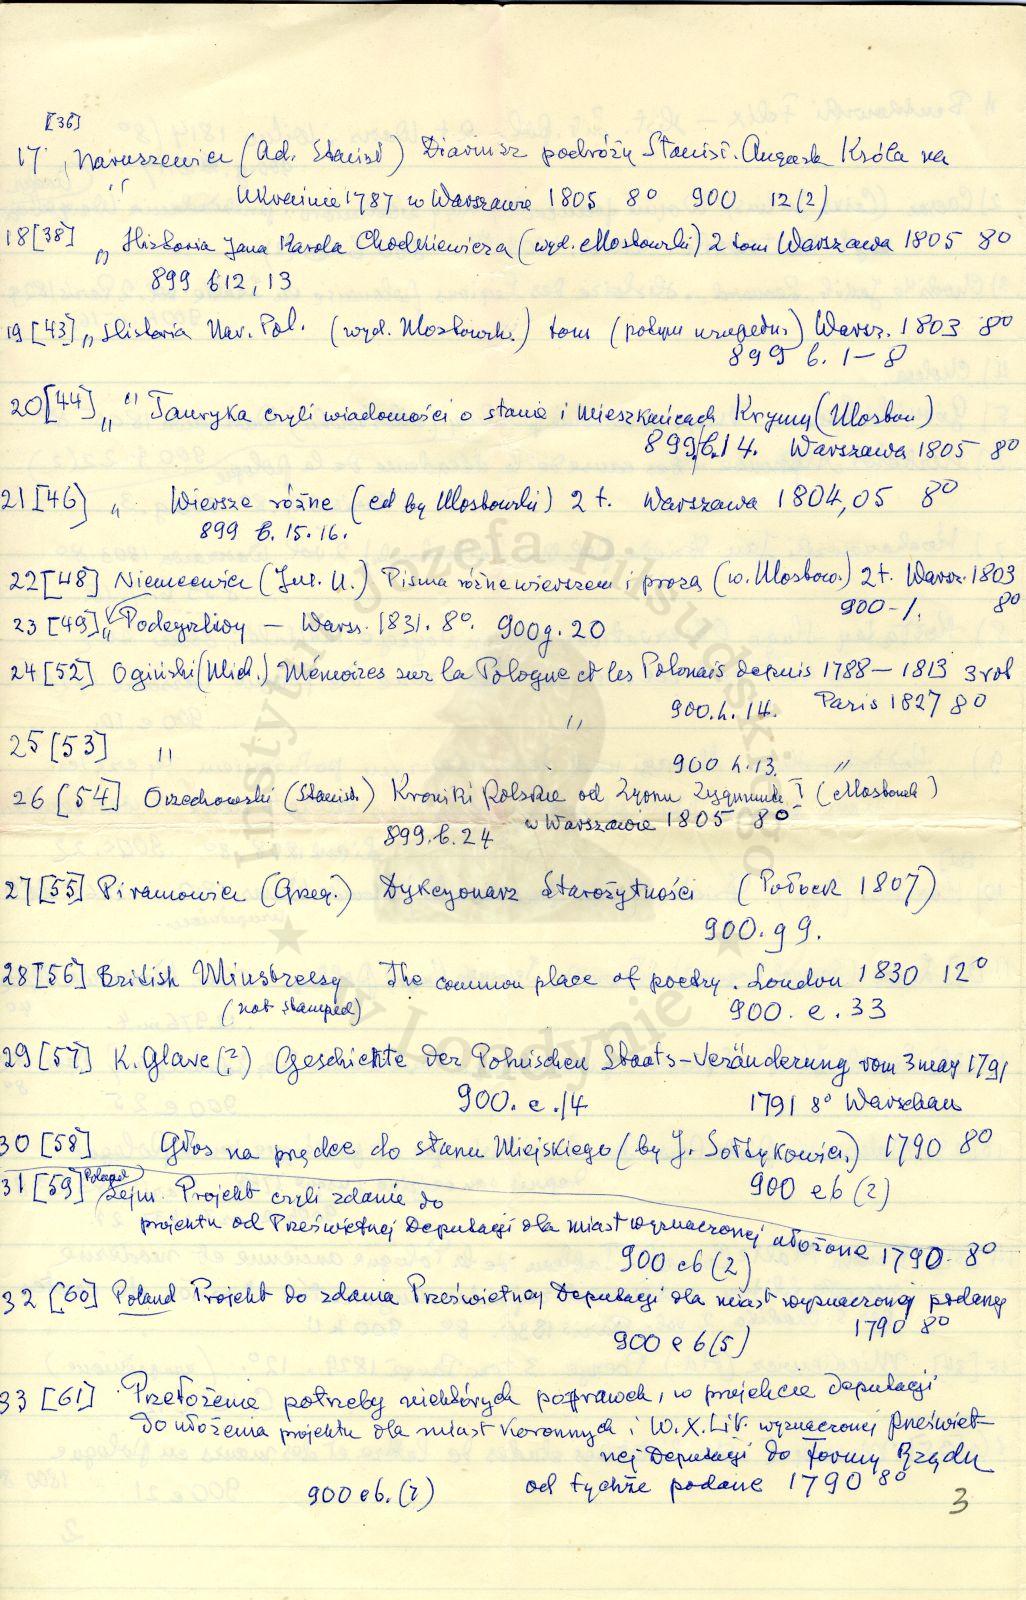 [36]
17. Naruszewicz (Ad. Stanisł) Diariusz podróży Stanisł. Augusta Króla na
" Ukrainie 1787 w Warszawie 1805 8º 900 12(2)
18 [38] " Historia Jana Karola Chodkiewicza (wyd. Mostowski) 2 tom Warszawa 1805 8º
899 b12, 13
19 [43] " Historia Nar. Pol. (wyd. Mostowsk.) tom Warsz. 1803 8º
899 b. 1-8
20 [44] " " Tauryka czyli wiadomości o stanie i mieszkańcach Krymu (Mostow)
899.b.14. Warszawa 1805 8º
21 [46] " Wiersze różne (ed by Mostowski) 2 t. Warszawa 1804,05 8º
899 b. 15. 16.
22 [48] Niemcewicz (Jul. U.) Pisma różne wierszem i prozą (w. Mostow.) 2 t. Warsz. 1803
900-1. 8º
23 [49] " Podejrzliwy — Warsz. 1831. 8º. 900g. 20
24 [52] Ogiński (Mich.) Mémoires sur la Pologne et les Polonais depuis 1788 — 1813 3 vol
" 900.h.14. Paris 1827 8º
25 [53] "
900 h.13. "
26 [54] Orzechowski (Stanisł.) Kroniki Polskie od Zgonu Zygmunta I (Mostowsk)
899.b.24 w Warszawie 1805 8º
27 [55] Piramowicz (Grzeg.) Dykcyonarz Starożytności (Połock 1807)
900. g 9.
28 [56] British Minstrelsy The common place of poetry. London 1830 12º
(not stamped) 900. e. 33
29 [57] K. Glave (?) Geschichte der Polnischen Staats-Veränderung vom 3 may 1791
900. e. 14 1791 8º Warschau
30 [58] Głos na prędce do stanu Miejskiego (by J. Sołtykowicz.) 1790 8º
900 e6 (2)
31 [59] Poland Sejm. Projekt czyli zdanie do
projektu od Prześwietnej Deputacji dla miast wyznaczonej ułożone 1790. 8º
900 e6 (2)
32 [60] Poland Projekt do zdania Prześwietnej Deputacji dla miast wyznaczonej podany
1790 8º
900 e 6(5)
33 [61] Przełożenie potrzeby niektórych poprawek, w projekcie Deputacji
do ułożenia projektu dla miast Koronnych i W.X.Lit. wyznaczonej Przeświet-
nej Deputacji do Formy Rządu
900 e6. (2) od tychże podane 1790 8º
3
Instytut Józefa Piłsudskiego
w Londynie